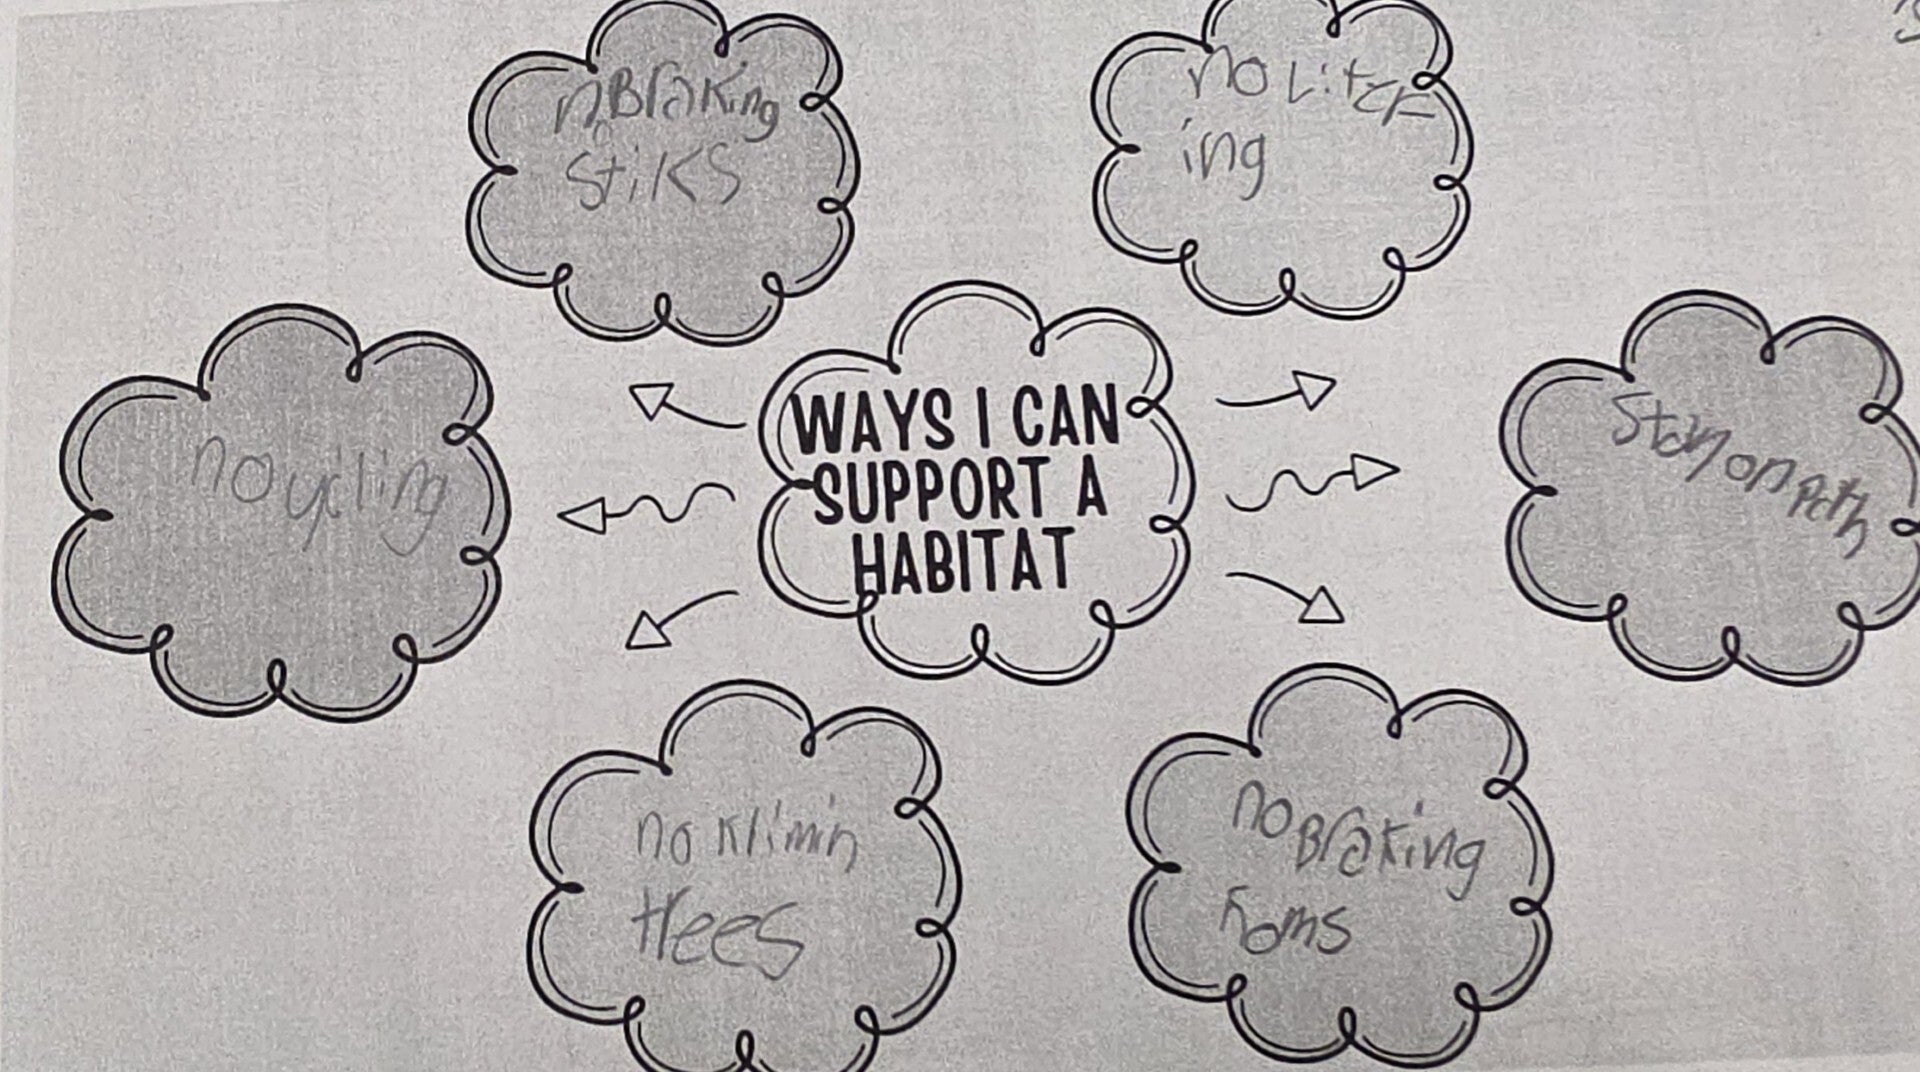 no Braking
stiks
no Litter
ing
no yciling
WAYS I CAN
SUPPORT A
HABITAT
Stay on Path
no klimin
trees
no Braking
homs